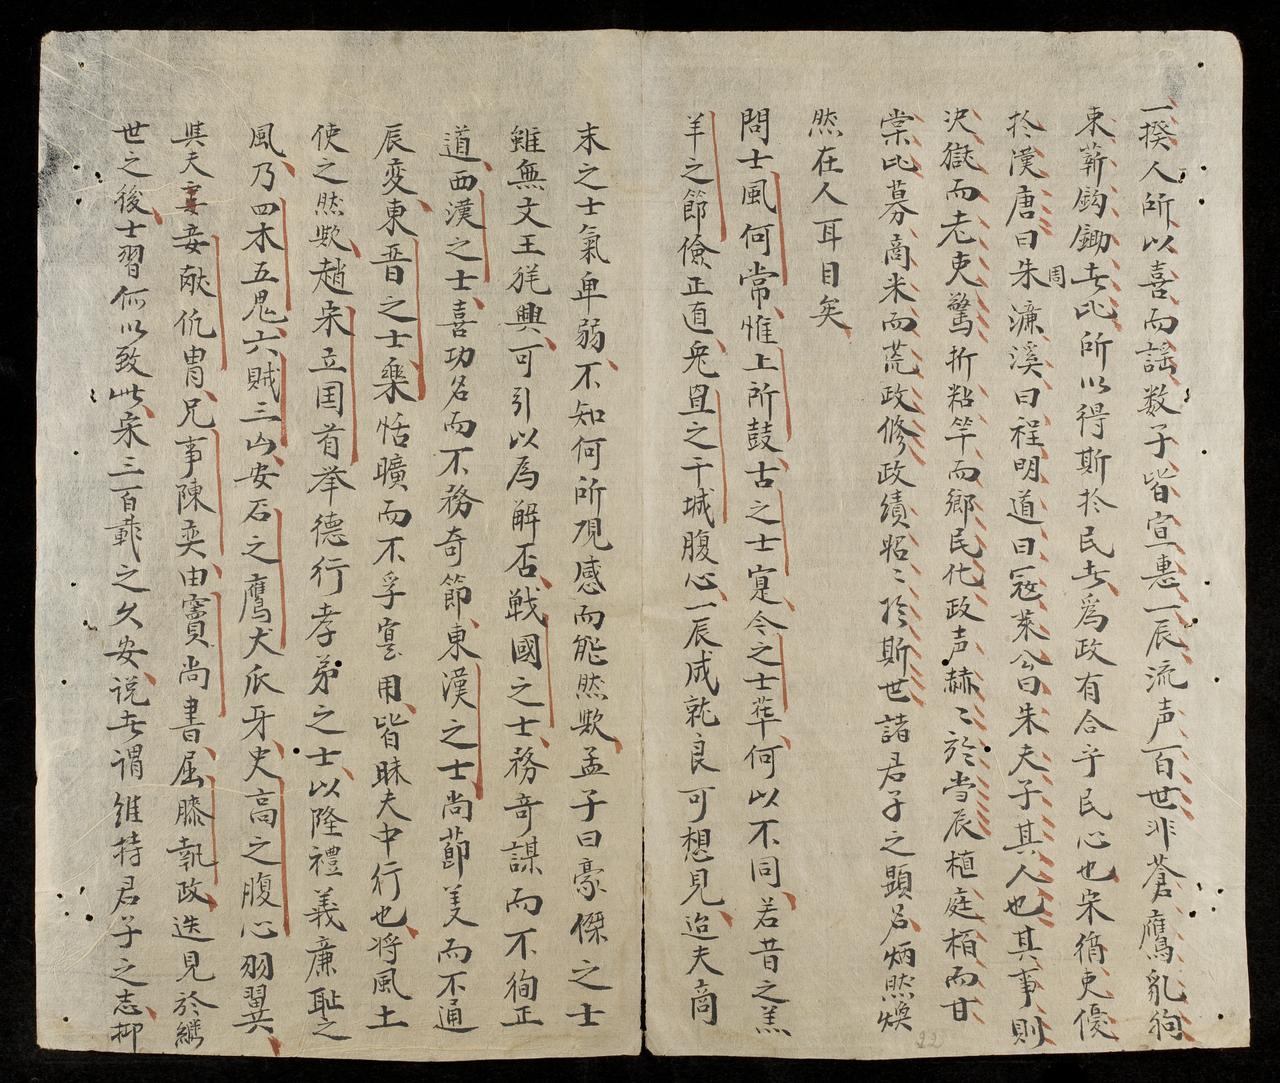 一揆人所以喜而謡数子皆宣惠一辰流声百世非蒼鷹乳狗
束薪鈎鋤者比所以得斯於民者爲政有合乎民心也宋循吏優
於漢唐曰朱周濂溪曰程明道曰冦萊公曰朱夫子其人也其事則
决獄而老吏驚折粘竿而鄉民化政声赫〻於当辰植庭栢而甘
棠比募商米而荒政修政績昭〻於斯世諸君子之顕名炳然煥
然在人耳目矣
問士風何常惟上所鼓古之士寔今之士華何以不同若昔之羔
羊之節儉正直兔罝之干城腹心一辰成就良可想見迨夫商
末之士氣卑弱不知何所覌感而能然欤孟子曰豪傑之士
雖無文王猶興可引以爲解否戦國之士務奇謀而不徇正
道西漢之士喜功名而不務奇節東漢之士尚節義而不通
辰変東晋之士樂恬曠而不孚寔用皆昧夫中行也将風土
使之然欤趙宋立国首举德行孝弟之士以隆禮義廉耻之
風乃四木五鬼六賊三山安石之鷹犬爪牙史高之腹心羽翼
與夫妻妾献侂冑兄事陳奕由竇尚書屈膝執政迭見於継
世之後士習何以致此宋三百載之久安説者謂維持君子之志抑
22